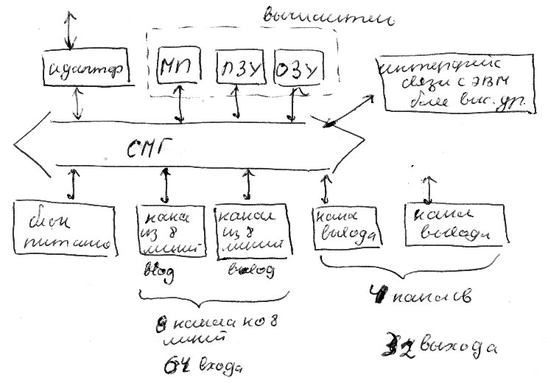 вычислитель
адаптер
МП
ПЗУ
ОЗУ
интерфейс
связи с ЭВМ
более выс. ур.
СМГ
блок
питания
канал
из 8
линий
вход
канал
из 8
линий
выход
канал
выхода
канал
выхода
8 канала по 8
линий
64 входа
4 каналов
32 выхода